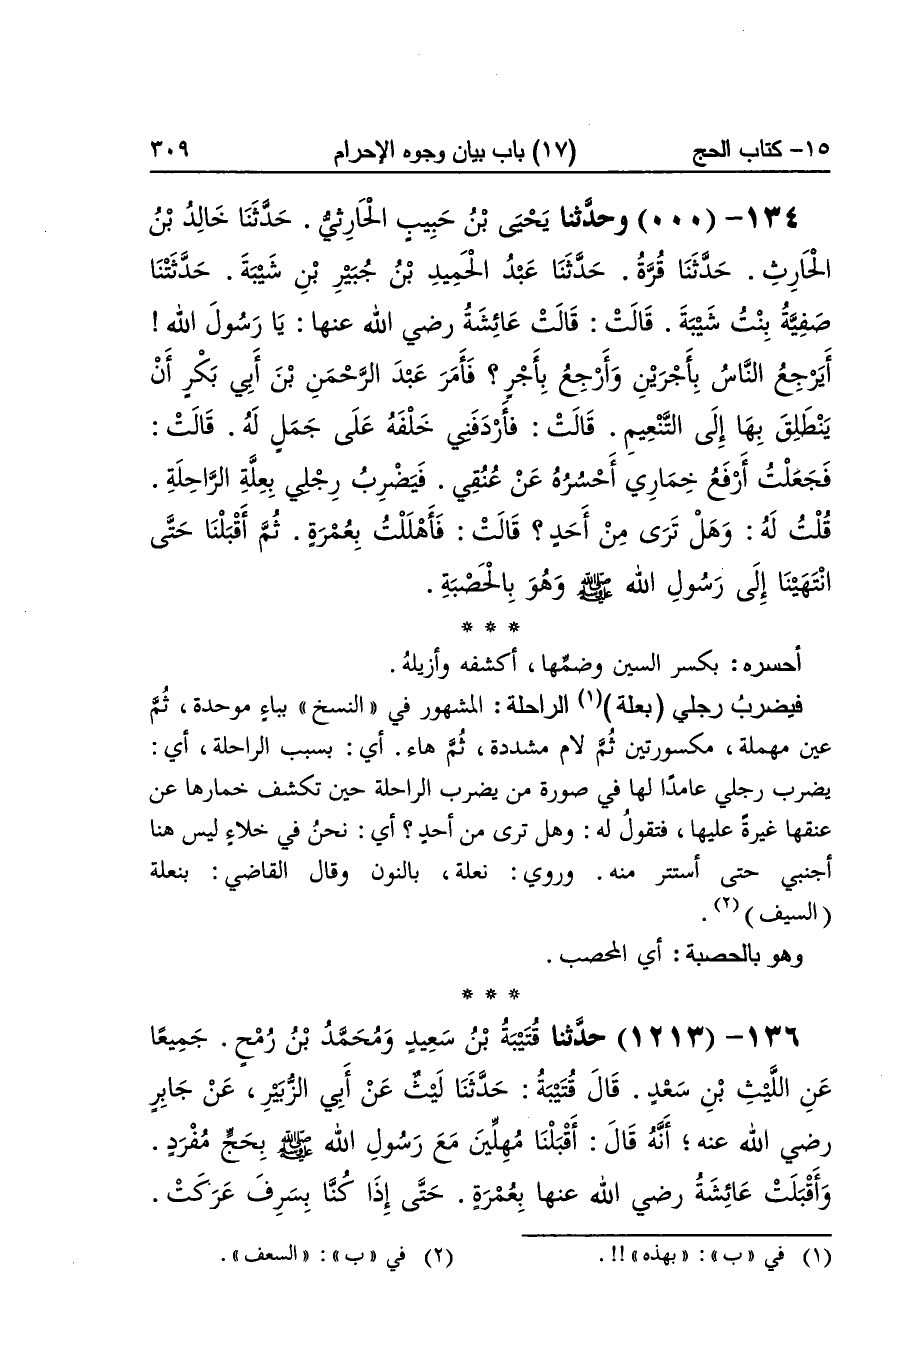 ١٥- كتاب الحج (١٧) باب بيان وجوه الإحرام ٣٠٩
١٣٤- (٠٠٠) وحدَّثنا يَحْيَى بْنُ حَبِيبٍ الْحَارِثِيُّ . حَدَّثَنَا خَالِدُ بْنُ
الْحَارِثِ . حَدَّثَنَا قُرَّةُ . حَدَّثَنَا عَبْدُ الْحَمِيدِ بْنُ جُبَيْرِ بْنِ شَيْبَةَ . حَدَّثَتْنَا
صَفِيَّةُ بِنْتُ شَيْبَةَ . قَالَتْ : قَالَتْ عَائِشَةُ رضي الله عنها : يَا رَسُولَ الله !
أَيَرْجِعُ النَّاسُ بِأَجْرَيْنِ وَأَرْجِعُ بِأَجْرٍ ؟ فَأَمَرَ عَبْدَ الرَّحْمَنِ بْنَ أَبِي بَكْرٍ أَنْ
يَنْطَلِقَ بِهَا إِلَى التَّنْعِيمِ . قَالَتْ : فأَرْدَفَنِي خَلْفَهُ عَلَى جَمَلٍ لَهُ . قَالَتْ :
فَجَعَلْتُ أَرْفَعُ خِمَارِي أَحْسُرُهُ عَنْ عُنُقِي . فَيَضْرِبُ رِجْلِي بِعِلَّةِ الرَّاحِلَةِ .
قُلْتُ لَهُ : وَهَلْ تَرَى مِنْ أَحَدٍ ؟ قَالَتْ : فَأَهْلَلْتُ بِعُمْرَةٍ . ثُمَّ أَقْبَلْنَا حَتَّى
انْتَهَيْنَا إِلَى رَسُولِ الله ﷺ وَهُوَ بِالْحَصْبَةِ .
* * *
أحسره : بكسر السين وضمِّها ، أكشفه وأزيلهُ .
فيضربُ رجلي (بعلة)(١) الراحلة : المشهور في «النسخ» بباءٍ موحدة ، ثُمَّ
عين مهملة ، مكسورتين ثُمَّ لام مشددة ، ثُمَّ هاء . أي : بسبب الراحلة ، أي :
يضرب رجلي عامدًا لها في صورة من يضرب الراحلة حين تكشف خمارها عن
عنقها غيرةً عليها ، فتقولُ له : وهل ترى من أحدٍ ؟ أي : نحنُ في خلاءٍ ليس هنا
أجنبي حتى أستتر منه . وروي : نعلة ، بالنون وقال القاضي : بنعلة
(السيف)(٢) .
وهو بالحصبة : أي المحصب .
* * *
١٣٦- (١٢١٣) حدَّثنا قُتَيْبَةُ بْنُ سَعِيدٍ وَمُحَمَّدُ بْنُ رُمْحٍ . جَمِيعًا
عَنِ اللَّيْثِ بْنِ سَعْدٍ . قَالَ قُتَيْبَةُ : حَدَّثَنَا لَيْثٌ عَنْ أَبِي الزُّبَيْرِ ، عَنْ جَابِرٍ
رضي الله عنه ؛ أَنَّهُ قَالَ : أَقْبَلْنَا مُهِلِّينَ مَعَ رَسُولِ الله ﷺ بِحَجٍّ مُفْرَدٍ .
وَأَقْبَلَتْ عَائِشَةُ رضي الله عنها بِعُمْرَةٍ . حَتَّى إِذَا كُنَّا بِسَرِفَ عَرَكَتْ .
(١) في «ب» : «بهذه» !! . (٢) في «ب» : «السعف» .